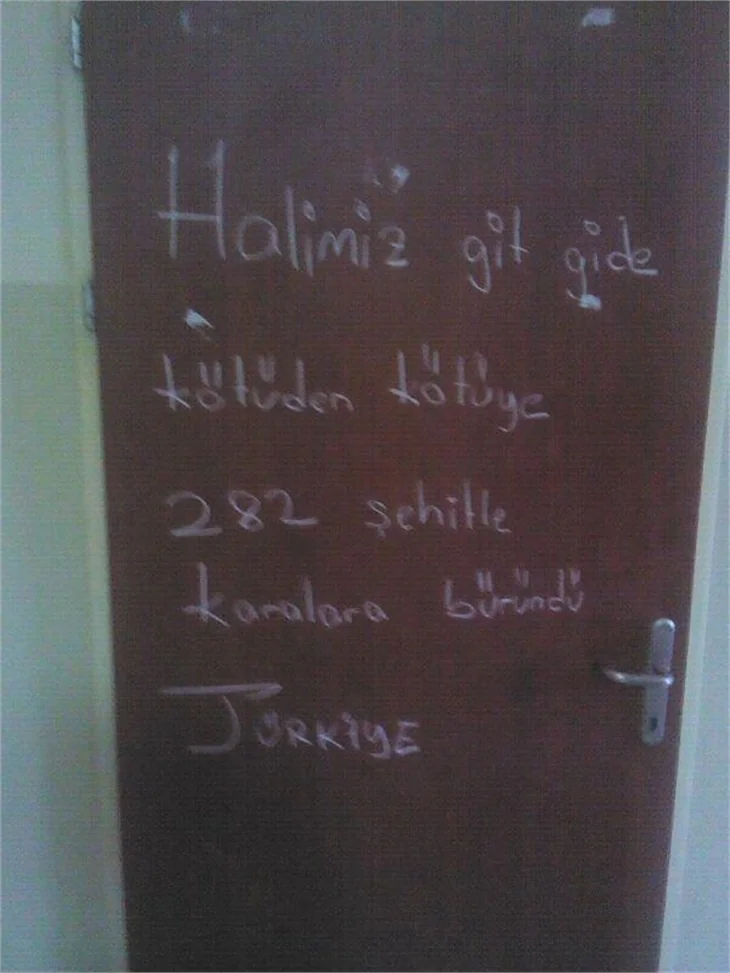 Halimiz git gide
kötüden kötüye
282 şehitle
karalara büründü
TÜRKİYE